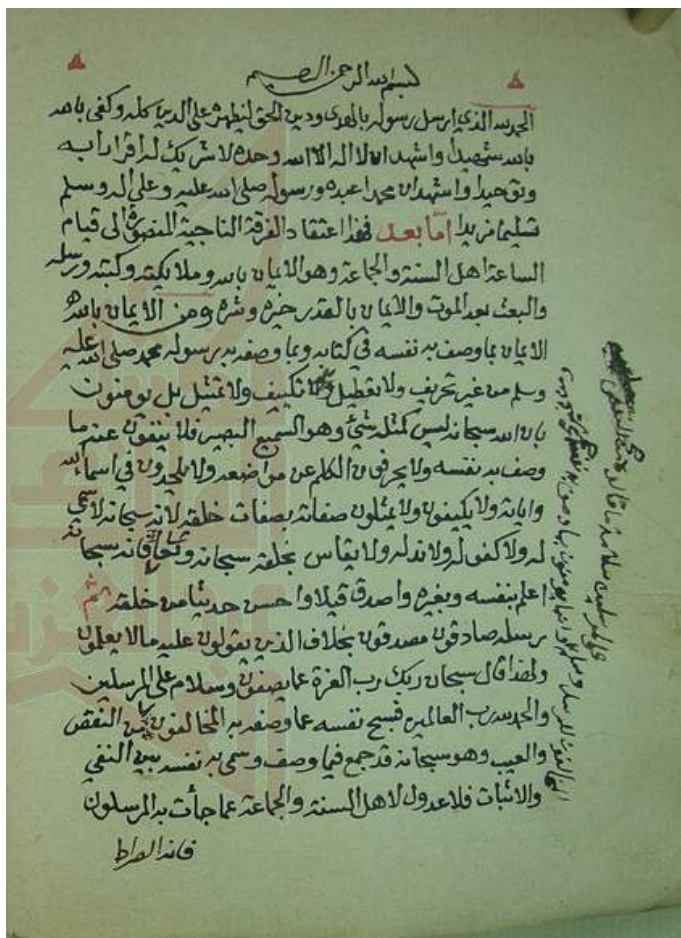 بسم الله الرحمن الرحيم
الحمد لله الذي ارسل رسوله بالهدى ودين الحق ليظهره على الدين كله وكفى بالله
بالله شهيدا واشهد ان لا اله الا الله وحده لا شريك له اقرارا به
وتوحيدا واشهد ان محمدا عبده ورسوله صلى الله عليه وعلى اله وسلم
تسليما مزيدا اما بعد فهذا اعتقاد الفرقة الناجية المنصورة الى قيام
الساعة اهل السنة والجماعة وهو الايمان بالله وملائكته وكتبه ورسله
والبعث بعد الموت والايمان بالقدر خيره وشره ومن الايمان بالله
الايمان بما وصف به نفسه في كتابه وبما وصفه به رسوله محمد صلى الله عليه
وسلم من غير تحريف ولا تعطيل ولا تكييف ولا تمثيل بل يومنون
بان الله سبحانه ليس كمثله شيء وهو السميع البصير فلا ينفون عنه ما
وصف به نفسه ولا يحرفون الكلم عن مواضعه ولا يلحدون في اسماء الله
واياته ولا يكيفون ولا يمثلون صفاته بصفات خلقه لانه سبحانه لا سمي
له ولا كفو له ولا ند له ولا يقاس بخلقه سبحانه وتعالى فانه سبحانه
اعلم بنفسه وبغيره واصدق قيلا واحسن حديثا من خلقه ثم
رسله صادقون مصدقون بخلاف الذين يقولون عليه ما لا يعلمون
ولهذا قال سبحان ربك رب العزة عما يصفون وسلام على المرسلين
والحمد لله رب العالمين فسبح نفسه عما وصفه به المخالفون من النقص
والعيب وهو سبحانه قد جمع فيما وصف وسمى به نفسه بين النفي
والاثبات فلا عدول لاهل السنة والجماعة عما جأت به المرسلون
فانه الصراط
المخالفون للرسل وسلم
على المرسلين سلامة ما قالوه من النقص